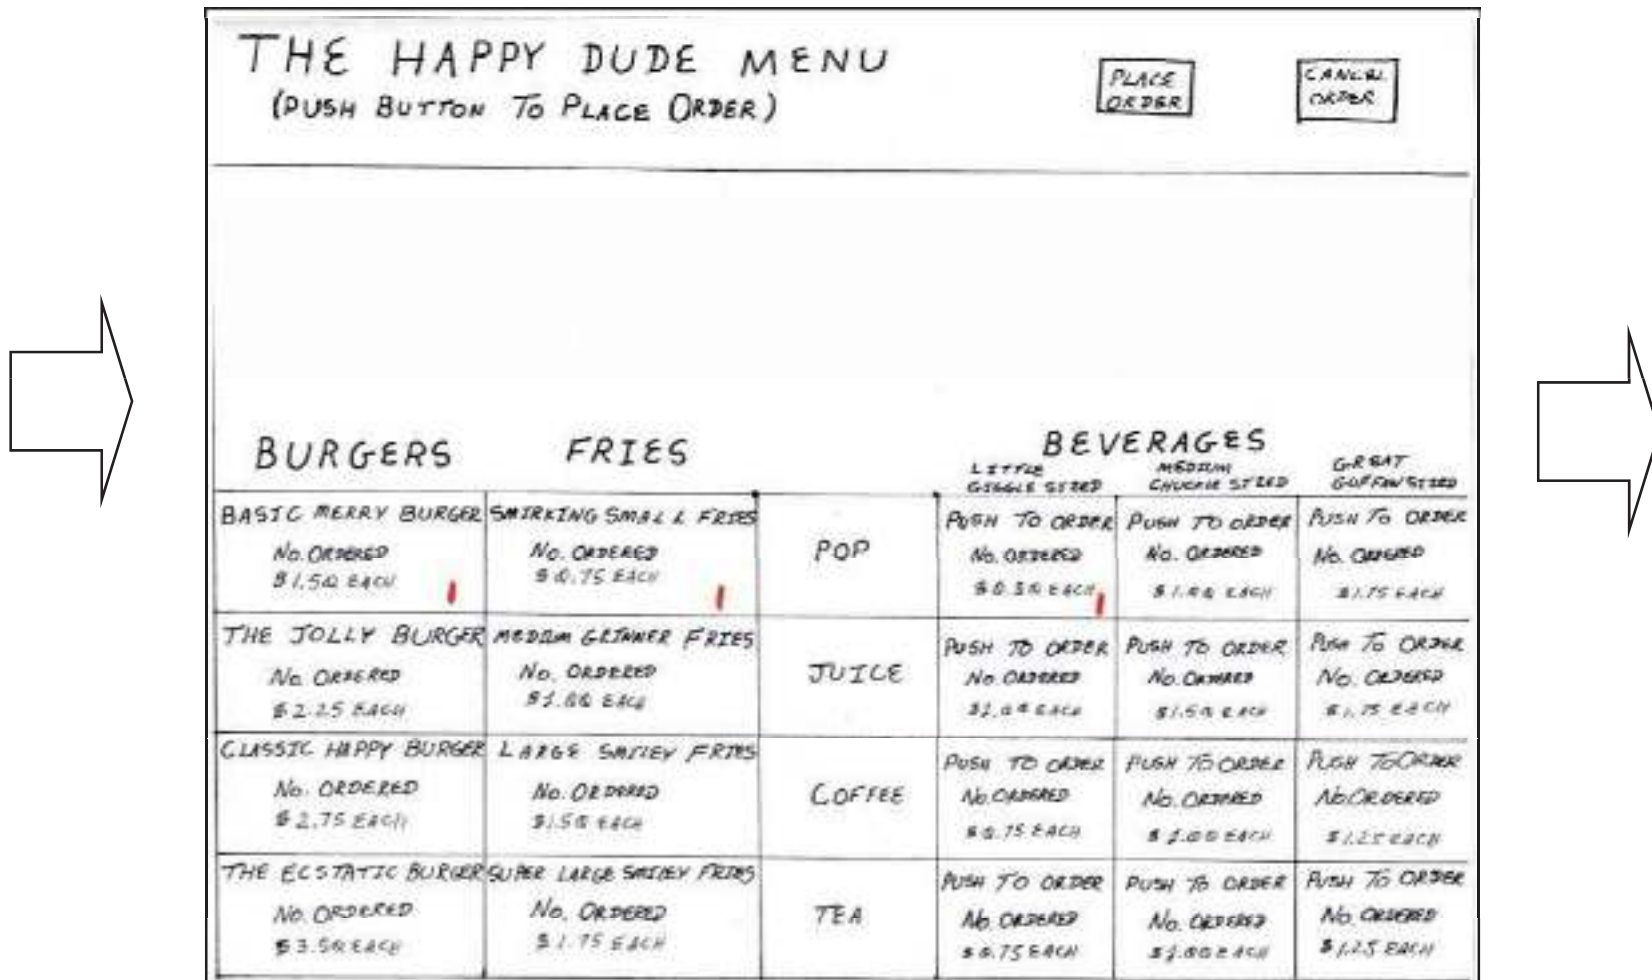 THE HAPPY DUDE MENU
(PUSH BUTTON TO PLACE ORDER)
PLACE
ORDER
CANCEL
ORDER
BURGERS
FRIES
BEVERAGES
LITTLE
GIGGLE SIZED
MEDIUM
CHUCKLE SIZED
GREAT
GUFFAW SIZED
BASIC MERRY BURGER
No. ORDERED
$1.50 EACH
1
SMIRKING SMALL FRIES
No. ORDERED
$0.75 EACH
1
POP
PUSH TO ORDER
No. ORDERED
$0.50 EACH
1
PUSH TO ORDER
No. ORDERED
$1.00 EACH
PUSH TO ORDER
No. ORDERED
$1.75 EACH
THE JOLLY BURGER
No. ORDERED
$2.25 EACH
MEDIUM GRINNER FRIES
No. ORDERED
$1.00 EACH
JUICE
PUSH TO ORDER
No. ORDERED
$1.00 EACH
PUSH TO ORDER
No. ORDERED
$1.50 EACH
PUSH TO ORDER
No. ORDERED
$1.75 EACH
CLASSIC HAPPY BURGER
No. ORDERED
$2.75 EACH
LARGE SMILEY FRIES
No. ORDERED
$1.50 EACH
COFFEE
PUSH TO ORDER
No. ORDERED
$0.75 EACH
PUSH TO ORDER
No. ORDERED
$1.00 EACH
PUSH TO ORDER
No. ORDERED
$1.25 EACH
THE ECSTATIC BURGER
No. ORDERED
$3.50 EACH
SUPER LARGE SMILEY FRIES
No. ORDERED
$1.75 EACH
TEA
PUSH TO ORDER
No. ORDERED
$0.75 EACH
PUSH TO ORDER
No. ORDERED
$1.00 EACH
PUSH TO ORDER
No. ORDERED
$1.25 EACH